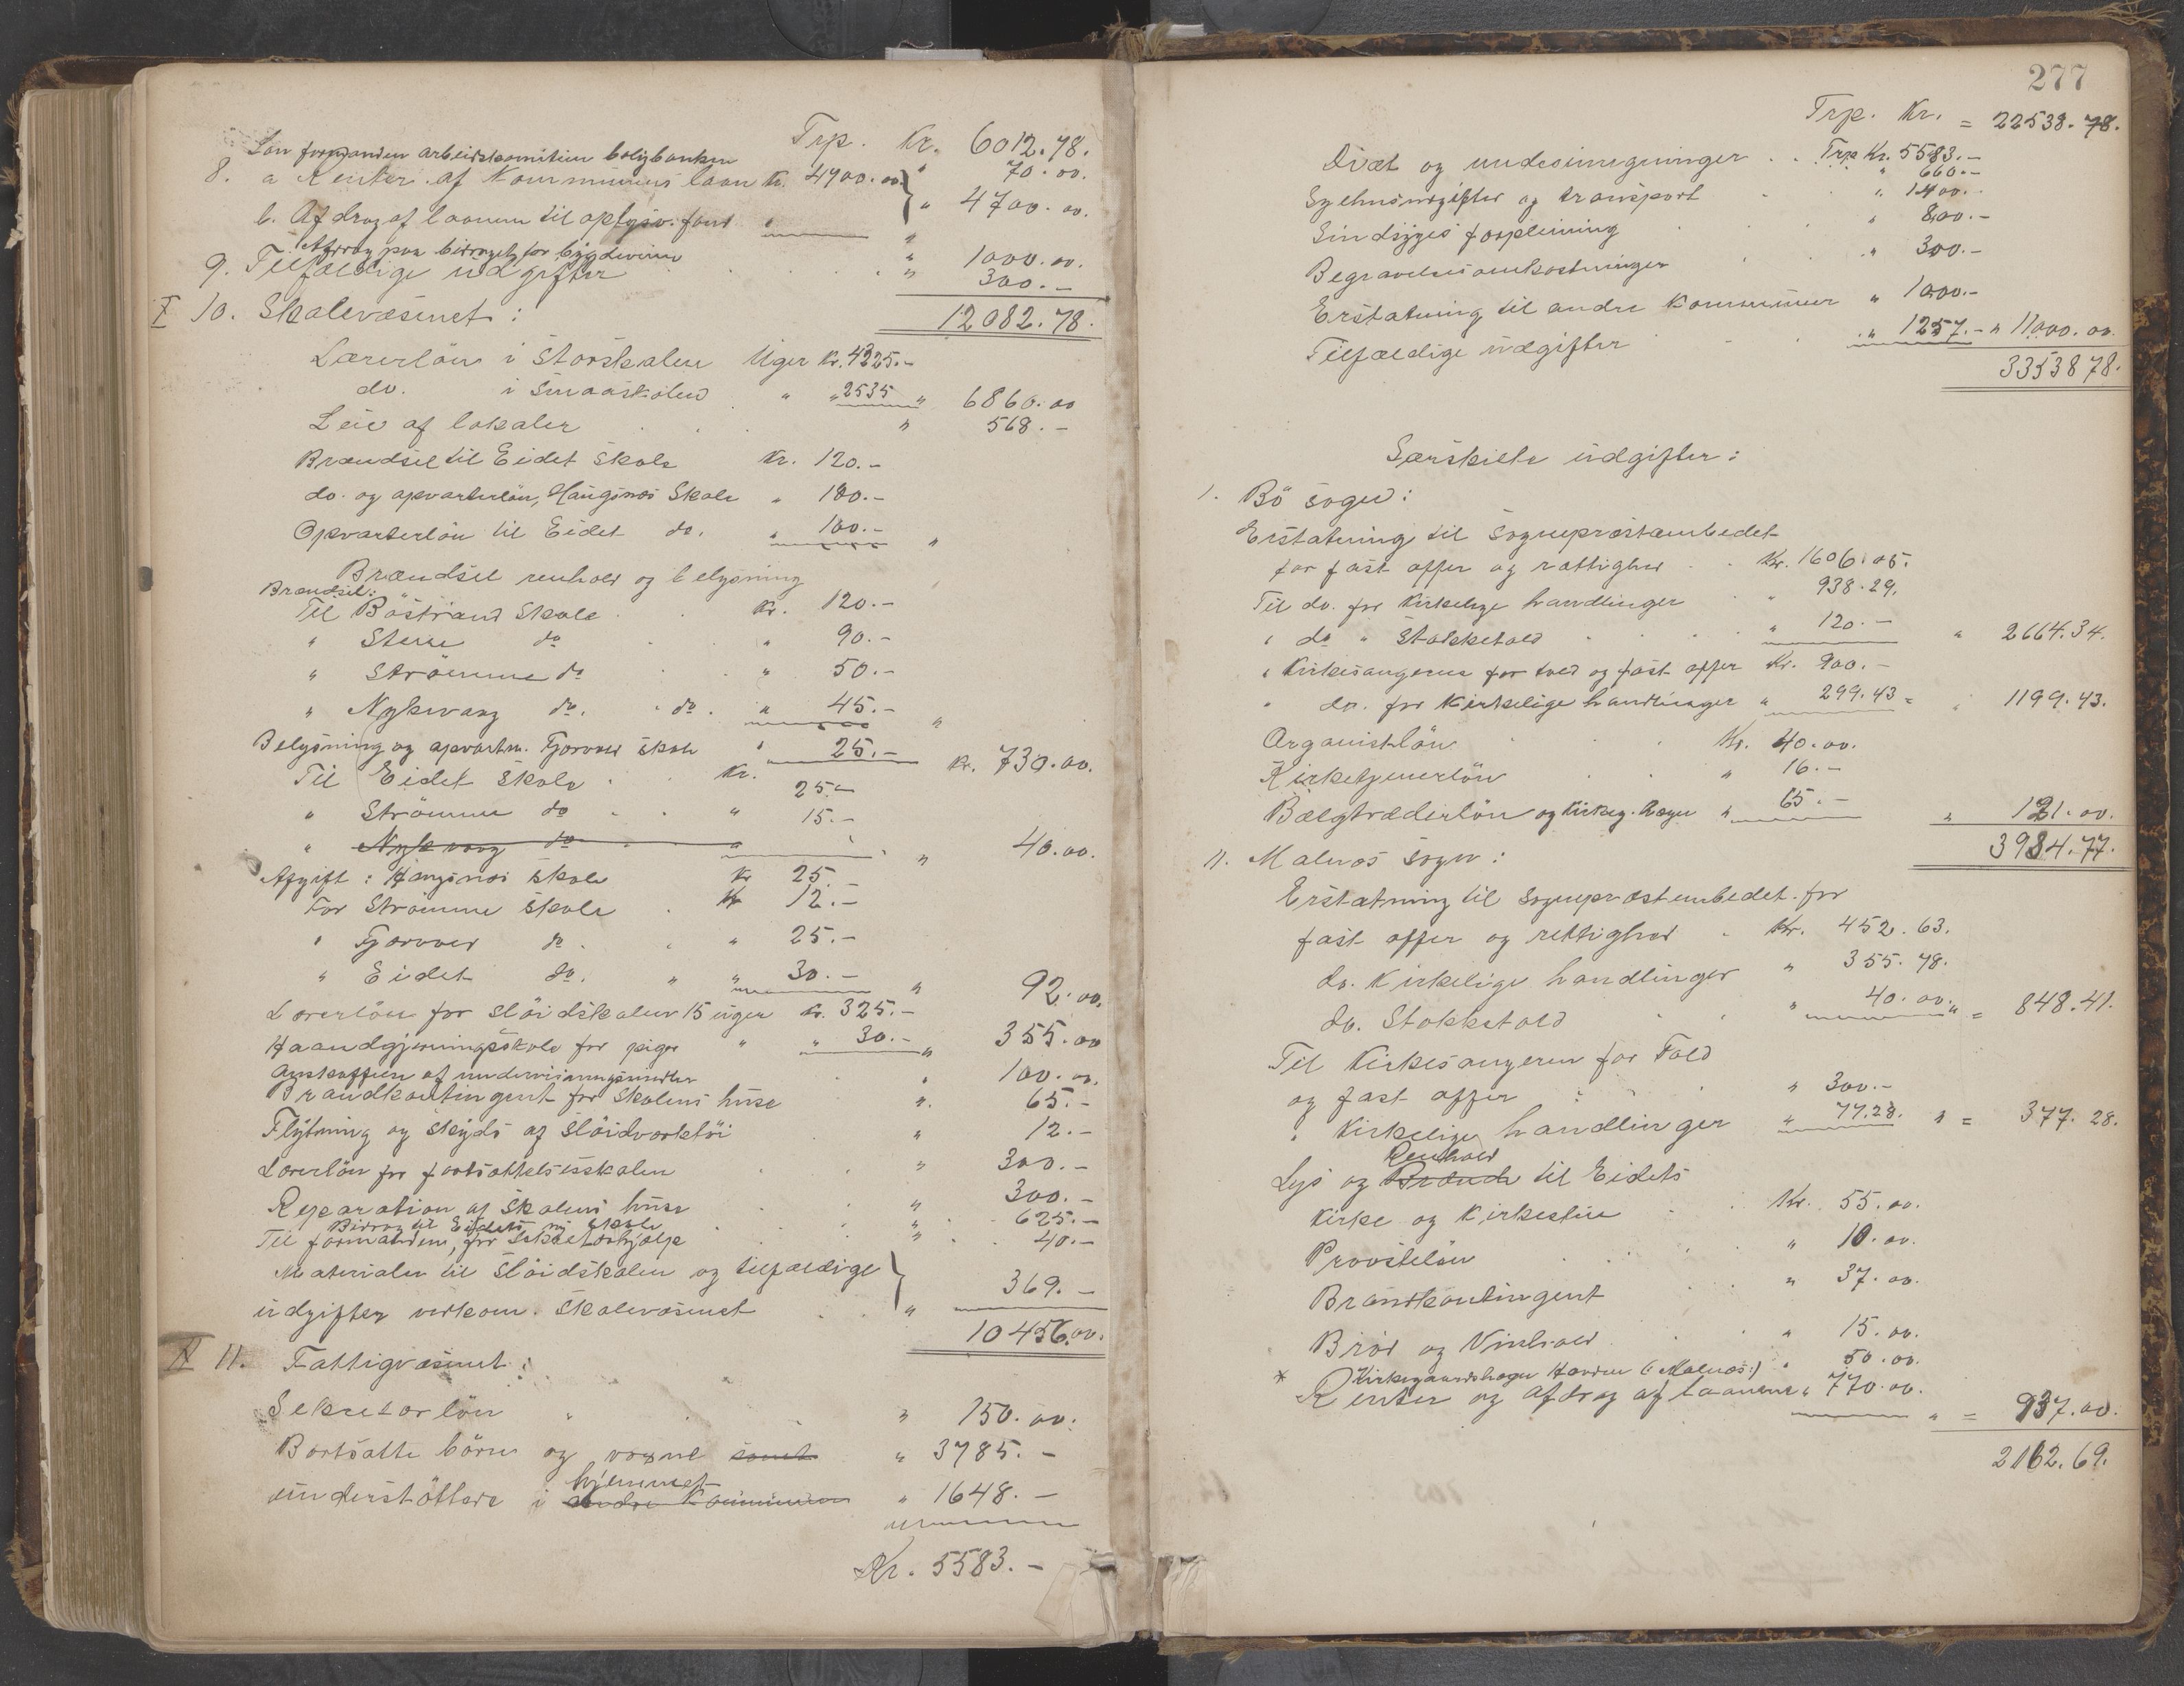 Trp. Kr. 6012.78.
Lön formanden arbeidskomitien boligbanken " 70.00.
8. a Renter af Kommunens laan Kr. 4700.00. } " 4700.00.
b. Afdrag af laanene til oplysn. fond " "
Afdrag paa bidraget for bygdeveiene " 1000.00.
9. Tilfældige udgifter " 300.-
12082.78.
I 10. Skolevæsenet:
Lærerlön i Storskolen Uger Kr. 4325.-
do. i Smaaskolen " " 2535 " 6860.00
Leie af lokaler " 568.-
Brændsel til Eidet Skole Kr. 120.-
do. og opvarterlön, Haugsnes Skole " 180.-
Opvarterlön til Eidet do. " 100.- "
Brændsel renhold og belysning
Brændsel:
Til Böstrand Skole Kr. 120.-
" Steine do " 90.-
" Strömme do " 50.-
" Nykvaag do. do. " 45.- "
Belysning og opvartn. Fjorvoll skole " 25.- Kr. 730.00.
Til Eidet Skole Kr. 25.-
" Strömme do " 15.-
" Nykvaag do " " 40.00.
Afgift: Haugsnes skole Kr 25.-
For Strömme Skole Kr 12.-
" Fjorvoll do. " 25.-
" Eidet do. " " 30.- " 92.00.
Lærerlön for Slöidskolen 15 uger Kr. 325.-
Haandgjerningsskole for piger " " 30.- " 355.00
Anskaffelse af undervisningsmidler " 100.00.
Brandkontingent for Skolens huse ". 65.-
Flytning og skyds af Slöidverktöi " 12.-
Lærerlön for fortsættelsesskolen " 300.-
Reparation af Skolens huse " 300.-
Bidrag til Eidets ny skole " 625.-
Til formanden, for Sekretærhjælp " 40.-
Materialer til Slöidskolen og tilfældige }
udgifter vedkom. Skolevæsenet " 369.-
10456.00.
II 11. Fattigvæsenet:
Sekretærlön " " 150.00.
Bortsatte börn og voxne samt " 3785.-
hjemmet
understöttede i andre Kommuner " 1648.-
Kr. 5583.-
277
Trp. Kr. = 22538.78.
Diæt og undersögninger Trp Kr. 5583.-
" 660.-
Sygehusudgifter og transport " 1400.-
Sindsyges forpleining " 800.-
Begravelsesomkostninger " 300.-
Erstatning til andre Kommuner " 1000.-
Tilfældige udgifter " 1257.- " 11000.00.
33538 78.
Særskilte udgifter:
I. Bö sogn:
Erstatning til Sogneprestembedet
for fast offer og rettighed Kr. 1606.05.
Til do. for Kirkelige handlinger " 938.29.
" do " Stokketold " 120.- " 2664.34.
" Kirkesangeren for told og fast offer Kr. 900.-
" do. for Kirkelige handlinger " 299.43 = " 1199.43.
Organistlön Kr. 40.00.
Kirketjenerlön " 16.-
Bælgtræderlön og Kirkeg. hagen " 65.- " 121.00.
3984.77.
II. Malnes sogn:
Erstatning til Sogneprestembedet for
fast offer og rettighed Kr. 452.63.
do. Kirkelige handlinger " 355.78.
do. Stokketold " 40.00. " = 848.41.
Til Kirkesangeren for Told
og fast offer " 300.-
" Kirkelige handlinger " 77.28. " = 377.28.
Renhold
Lys og Brænde til Eidets
Kirke og Kirkestue Kr. 55.00.
Provstelön " 10.00.
Brandkontingent " 37.00.
Bröd og Vinhold " 15.00.
* Kirkegaardshagen Hovden (: Malnes :) " 50.00.
Renter og afdrag af laanene " 770.00.
" = 937.00.
2162.69.